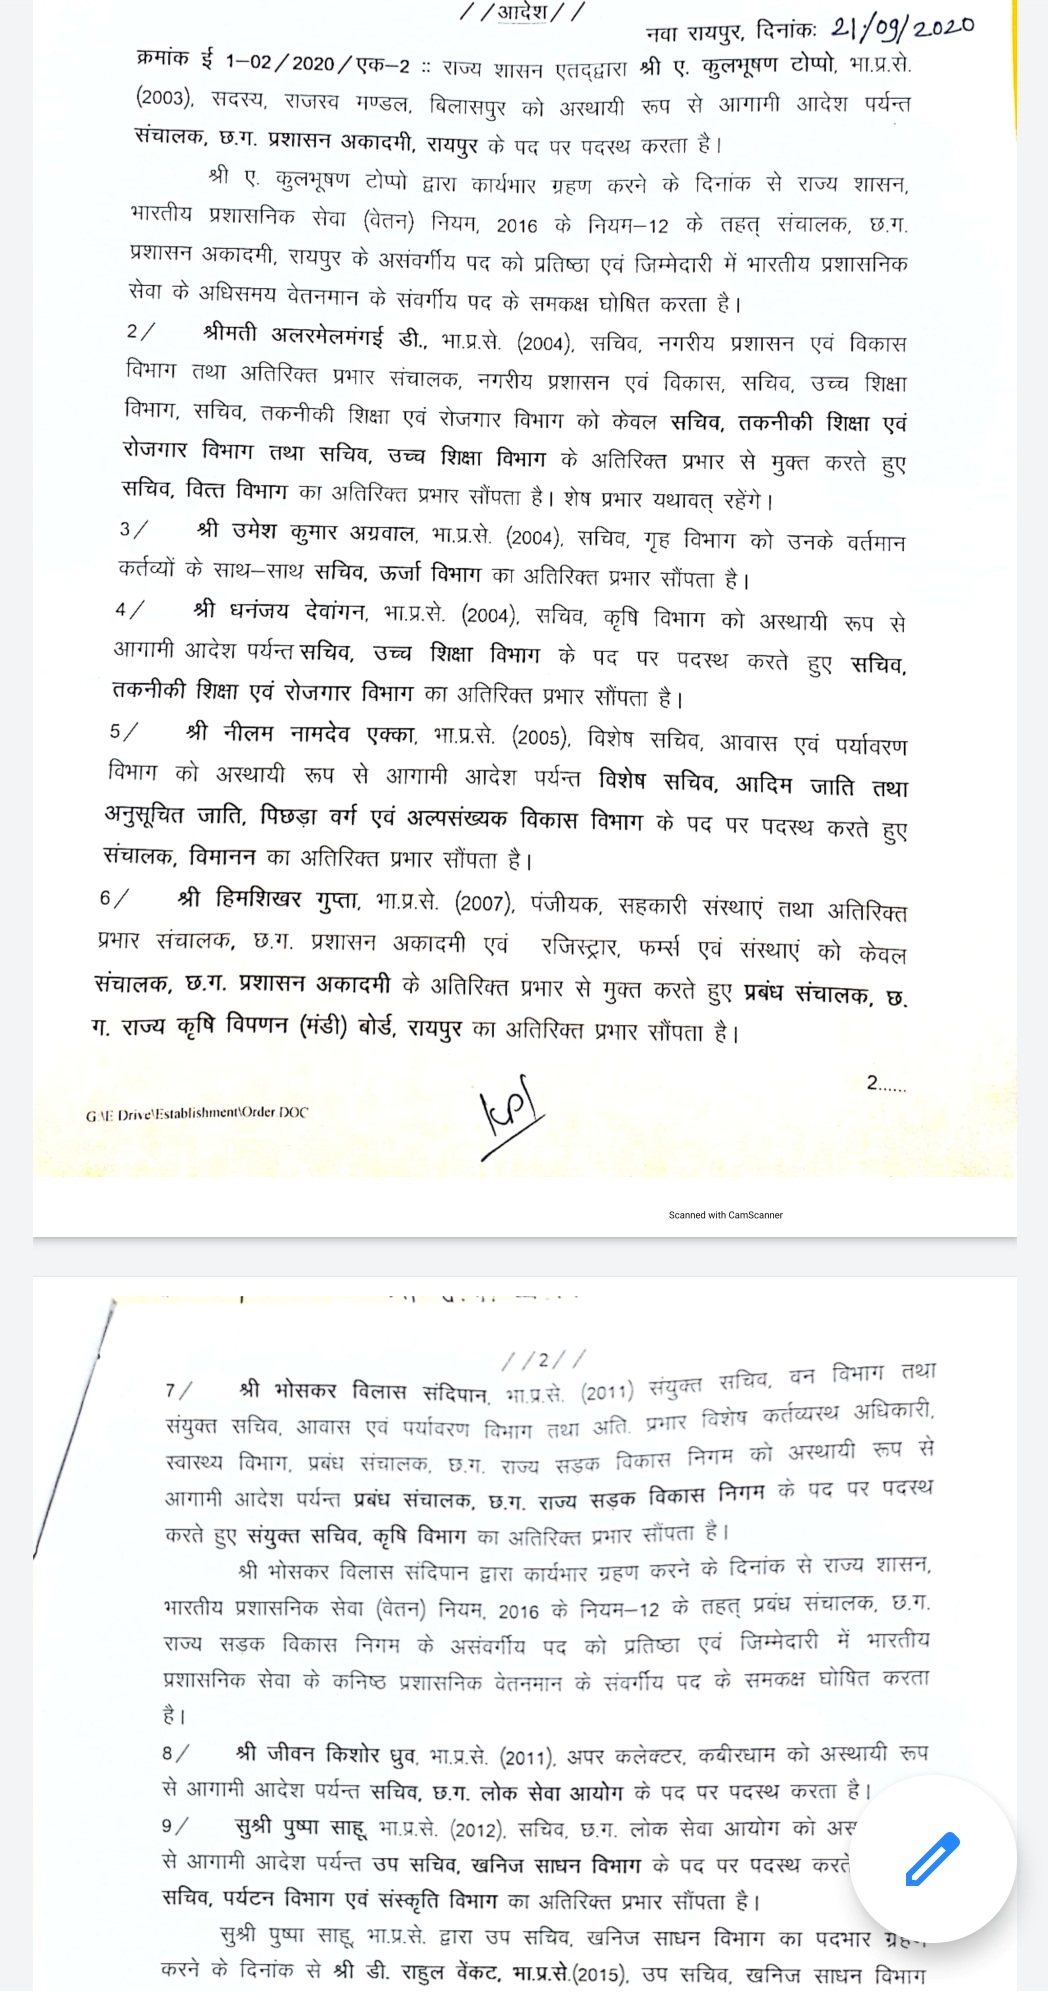 //आदेश//
नवा रायपुर, दिनांकः 21/09/2020
क्रमांक ई 1–02/2020/एक–2 :: राज्य शासन एतद्द्वारा श्री ए. कुलभूषण टोप्पो, भा.प्र.से.
(2003), सदस्य, राजस्व मण्डल, बिलासपुर को अस्थायी रूप से आगामी आदेश पर्यन्त
संचालक, छ.ग. प्रशासन अकादमी, रायपुर के पद पर पदस्थ करता है।
श्री ए. कुलभूषण टोप्पो द्वारा कार्यभार ग्रहण करने के दिनांक से राज्य शासन,
भारतीय प्रशासनिक सेवा (वेतन) नियम, 2016 के नियम–12 के तहत् संचालक, छ.ग.
प्रशासन अकादमी, रायपुर के असंवर्गीय पद को प्रतिष्ठा एवं जिम्मेदारी में भारतीय प्रशासनिक
सेवा के अधिसमय वेतनमान के संवर्गीय पद के समकक्ष घोषित करता है।
2/ श्रीमती अलरमेलमंगई डी., भा.प्र.से. (2004), सचिव, नगरीय प्रशासन एवं विकास
विभाग तथा अतिरिक्त प्रभार संचालक, नगरीय प्रशासन एवं विकास, सचिव, उच्च शिक्षा
विभाग, सचिव, तकनीकी शिक्षा एवं रोजगार विभाग को केवल सचिव, तकनीकी शिक्षा एवं
रोजगार विभाग तथा सचिव, उच्च शिक्षा विभाग के अतिरिक्त प्रभार से मुक्त करते हुए
सचिव, वित्त विभाग का अतिरिक्त प्रभार सौंपता है। शेष प्रभार यथावत् रहेंगे।
3/ श्री उमेश कुमार अग्रवाल, भा.प्र.से. (2004), सचिव, गृह विभाग को उनके वर्तमान
कर्तव्यों के साथ–साथ सचिव, ऊर्जा विभाग का अतिरिक्त प्रभार सौंपता है।
4/ श्री धनंजय देवांगन, भा.प्र.से. (2004), सचिव, कृषि विभाग को अस्थायी रूप से
आगामी आदेश पर्यन्त सचिव, उच्च शिक्षा विभाग के पद पर पदस्थ करते हुए सचिव,
तकनीकी शिक्षा एवं रोजगार विभाग का अतिरिक्त प्रभार सौंपता है।
5/ श्री नीलम नामदेव एक्का, भा.प्र.से. (2005), विशेष सचिव, आवास एवं पर्यावरण
विभाग को अस्थायी रूप से आगामी आदेश पर्यन्त विशेष सचिव, आदिम जाति तथा
अनुसूचित जाति, पिछड़ा वर्ग एवं अल्पसंख्यक विकास विभाग के पद पर पदस्थ करते हुए
संचालक, विमानन का अतिरिक्त प्रभार सौंपता है।
6/ श्री हिमशिखर गुप्ता, भा.प्र.से. (2007), पंजीयक, सहकारी संस्थाएं तथा अतिरिक्त
प्रभार संचालक, छ.ग. प्रशासन अकादमी एवं रजिस्ट्रार, फर्म्स एवं संस्थाएं को केवल
संचालक, छ.ग. प्रशासन अकादमी के अतिरिक्त प्रभार से मुक्त करते हुए प्रबंध संचालक, छ.
ग. राज्य कृषि विपणन (मंडी) बोर्ड, रायपुर का अतिरिक्त प्रभार सौंपता है।
2......
G:\E Drive\Establishment\Order DOC
Scanned with CamScanner
//2//
7/ श्री भोसकर विलास संदिपान, भा.प्र.से. (2011) संयुक्त सचिव, वन विभाग तथा
संयुक्त सचिव, आवास एवं पर्यावरण विभाग तथा अति. प्रभार विशेष कर्तव्यस्थ अधिकारी,
स्वास्थ्य विभाग, प्रबंध संचालक, छ.ग. राज्य सड़क विकास निगम को अस्थायी रूप से
आगामी आदेश पर्यन्त प्रबंध संचालक, छ.ग. राज्य सड़क विकास निगम के पद पर पदस्थ
करते हुए संयुक्त सचिव, कृषि विभाग का अतिरिक्त प्रभार सौंपता है।
श्री भोसकर विलास संदिपान द्वारा कार्यभार ग्रहण करने के दिनांक से राज्य शासन,
भारतीय प्रशासनिक सेवा (वेतन) नियम, 2016 के नियम–12 के तहत् प्रबंध संचालक, छ.ग.
राज्य सड़क विकास निगम के असंवर्गीय पद को प्रतिष्ठा एवं जिम्मेदारी में भारतीय
प्रशासनिक सेवा के कनिष्ठ प्रशासनिक वेतनमान के संवर्गीय पद के समकक्ष घोषित करता
है।
8/ श्री जीवन किशोर ध्रुव, भा.प्र.से. (2011), अपर कलेक्टर, कबीरधाम को अस्थायी रूप
से आगामी आदेश पर्यन्त सचिव, छ.ग. लोक सेवा आयोग के पद पर पदस्थ करता है।
9/ सुश्री पुष्पा साहू, भा.प्र.से. (2012), सचिव, छ.ग. लोक सेवा आयोग को
से आगामी आदेश पर्यन्त उप सचिव, खनिज साधन विभाग के पद पर पदस्थ करते
सचिव, पर्यटन विभाग एवं संस्कृति विभाग का अतिरिक्त प्रभार सौंपता है।
सुश्री पुष्पा साहू, भा.प्र.से. द्वारा उप सचिव, खनिज साधन विभाग का पदभार ग्रहण
करने के दिनांक से श्री डी. राहुल वेंकट, भा.प्र.से.(2015), उप सचिव, खनिज साधन विभाग